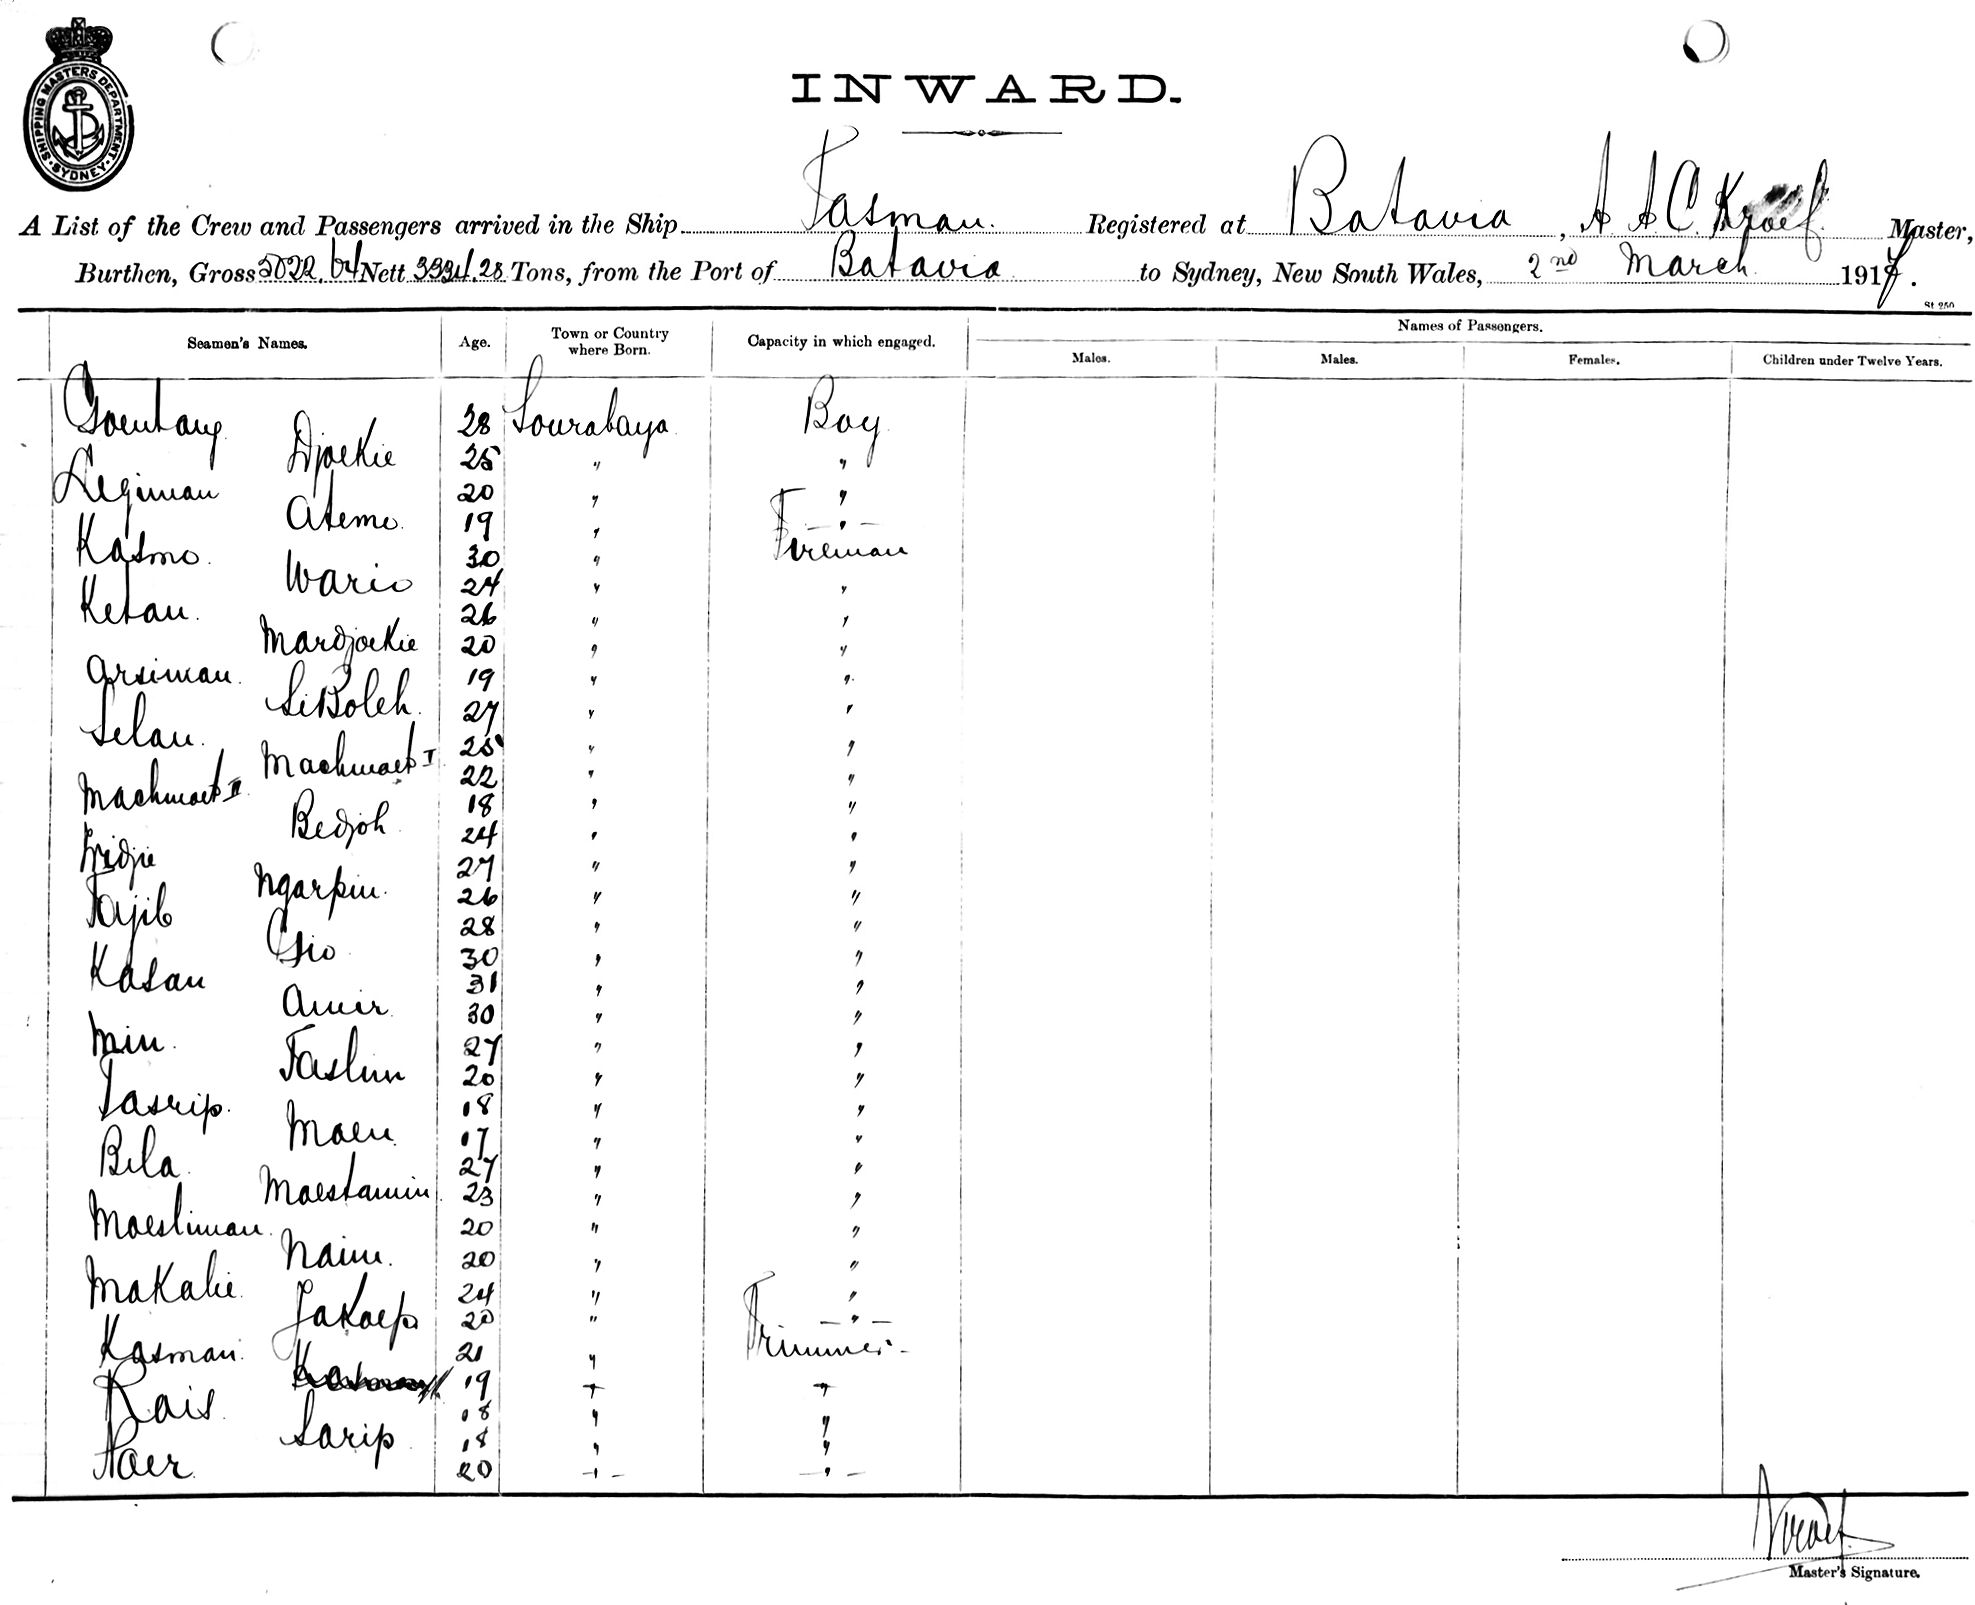 SHIPPING MASTERS DEPARTMENT. SYDNEY.
INWARD.
A List of the Crew and Passengers arrived in the Ship Tasman. Registered at Batavia, A A C Kroef. Master,
Burthen, Gross 5022.64 Nett 3334.28 Tons, from the Port of Batavia to Sydney, New South Wales, 2nd March 1917.
St 250
Seamen's Names. Age. Town or Country where Born. Capacity in which engaged. Names of Passengers.
Males. Males. Females. Children under Twelve Years.
Goentang 28 Sourabaya Boy
Djoekie 25 " "
Legiman 20 " "
Atemo. 19 " "
Kasmo. 30 " Fireman
Wario 24 " "
Ketan. 26 " "
Mardjoekie 20 " "
Arsiman. 19 " "
SiBoleh. 27 " "
Selan. 25 " "
Machmoet I 22 " "
Machmoet II 18 " "
Bedjoh 24 " "
27 " "
Ngarpin. 26 " "
Tajib 28 " "
Gio 30 " "
Kasan 31 " "
Amir. 30 " "
Min. 27 " "
Taslim 20 " "
Tasrip. 18 " "
Moen 17 " "
Bila 27 " "
Moestamin 23 " "
Moesliman. 20 " "
Naim. 20 " "
Makalie 24 " "
Jakoep 20 " "
Kasman. 21 " Trimmer
19 " "
Rais 18 " "
Sarip 18 " "
Noer 20 " "
Kroef
Master's Signature.